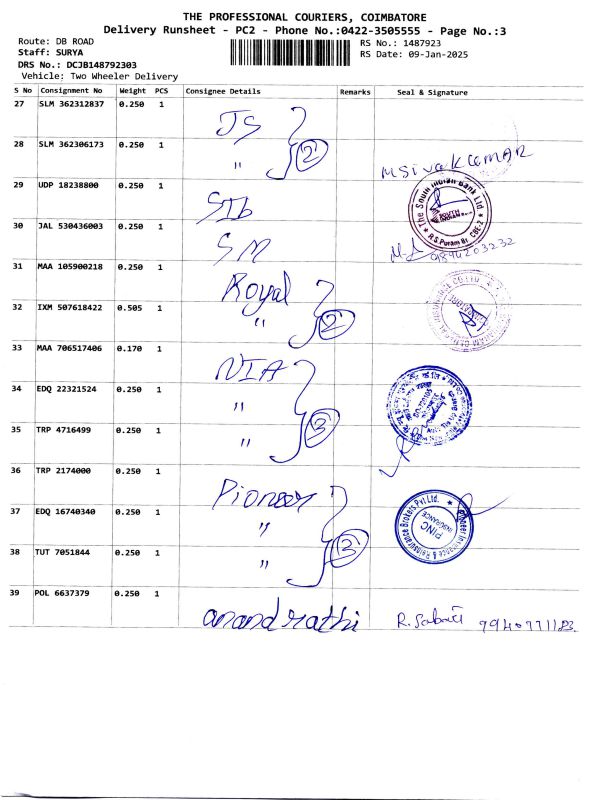 THE PROFESSIONAL COURIERS, COIMBATORE
Delivery Runsheet - PC2 - Phone No.:0422-3505555 - Page No.:3
Route: DB ROAD
RS No.: 1487923
Staff: SURYA
RS Date: 09-Jan-2025
DRS No.: DCJB148792303
Vehicle: Two Wheeler Delivery
S No Consignment No Weight PCS Consignee Details Remarks Seal & Signature
27 SLM 362312837 0.250 1 JS
28 SLM 362306173 0.250 1 " 2 M Sivakumar
29 UDP 18238800 0.250 1 SIb
The South Indian Bank Ltd.
SOUTH INDIAN Bank
R.S Puram Br. CBE-2
30 JAL 530436003 0.250 1 SM 9894203232
31 MAA 105900218 0.250 1 Royal
32 IXM 507618422 0.505 1 " 2
33 MAA 706517406 0.170 1 NIA
34 EDQ 22321524 0.250 1 "
35 TRP 4716499 0.250 1 " 3
36 TRP 2174000 0.250 1 Pioneer
37 EDQ 16740340 0.250 1 "
Pioneer Insurance & Reinsurance Brokers Pvt Ltd.
PINC
INSURANCE
38 TUT 7051844 0.250 1 " 3
39 POL 6637379 0.250 1 anandrathi R. Sabari